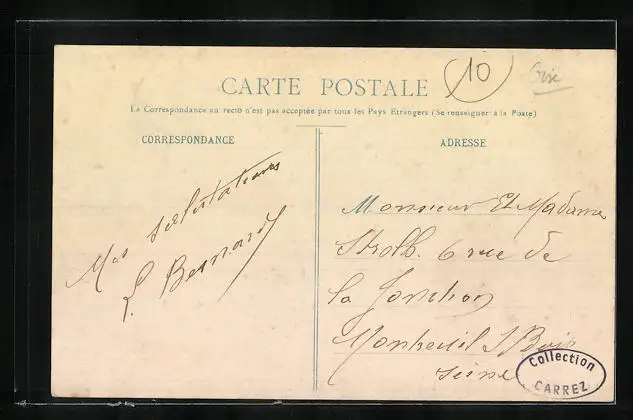 CARTE POSTALE
10
La Correspondance au recto n'est pas acceptée par tous les Pays Etrangers (Se renseigner à la Poste)
CORRESPONDANCE
ADRESSE
Mes salutations
Bernard
Monsieur Et Madame
6 rue de
la
Montreuil S Bois
Seine
Collection
CARREZ